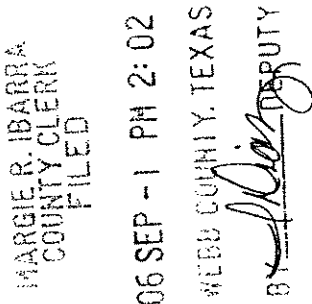 MARGIE R. IBARRA
COUNTY CLERK
FILED
06 SEP -1 PM 2:02
WEBB COUNTY, TEXAS
BY DEPUTY